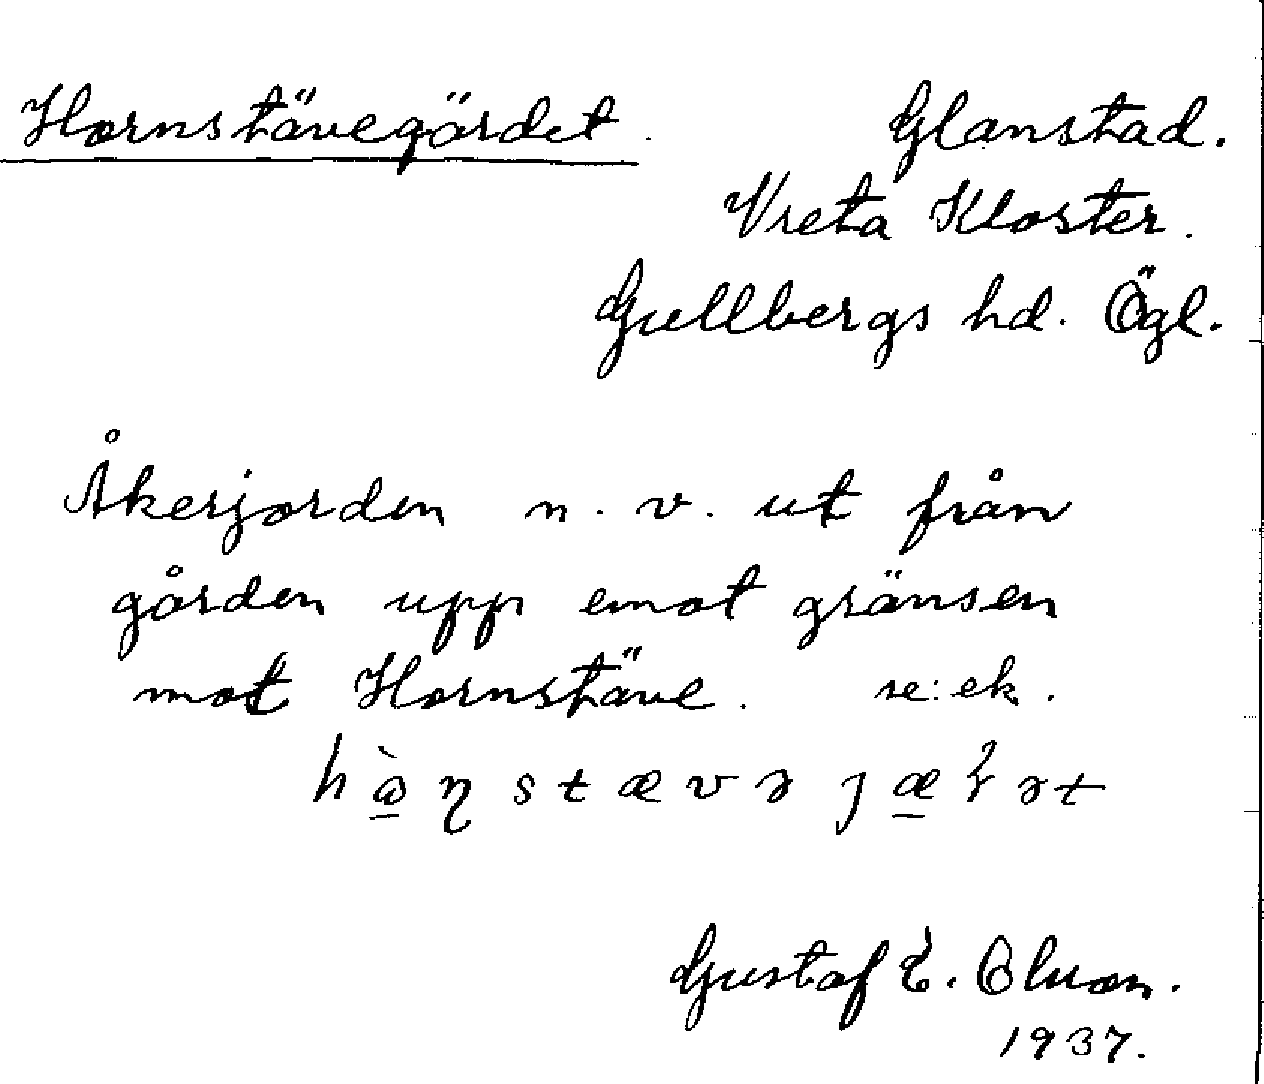 Hornstävegärdet. Glanstad.
Vreta Kloster.
Gullbergs hd. Ögl.
Åkerjorden n. v. ut från
gården upp emot gränsen
mot Hornstäve. se: ek.
Gustaf E. Olsson.
1937.